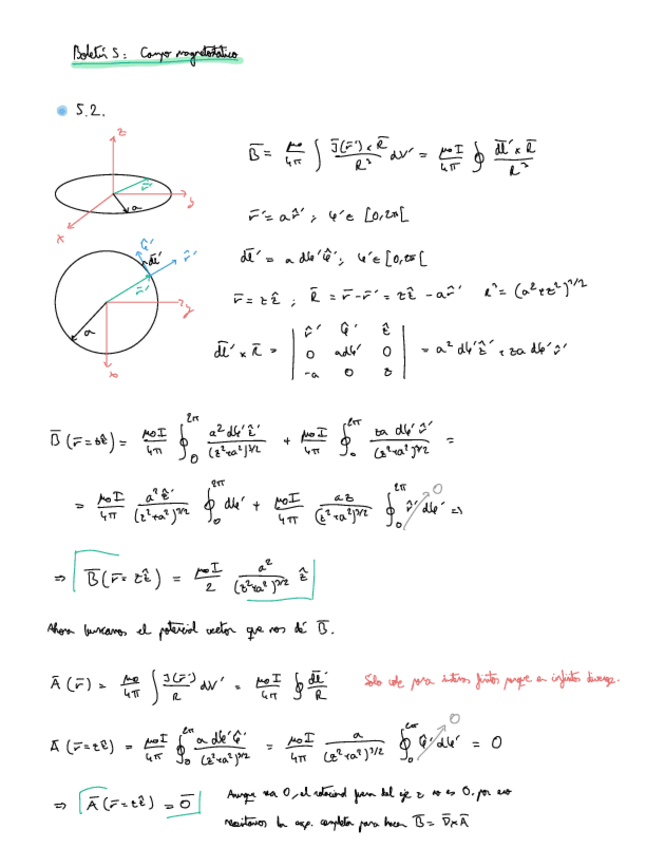 Boletín 5: Campo magnetostático
5.2.
z
r̄'
a
y
x
φ̂'
dl̄'
r̂'
r̄'
y
a
x
B̄ = μ₀/4π ∫ J̄(r̄') × R̄ / R³ dV' = μ₀I/4π ∮ dl̄' × R̄ / R³
r̄' = a r̂' ; φ' ∈ [0, 2π[
dl̄' = a dφ' φ̂' ; φ' ∈ [0, 2π[
r̄ = z ẑ ; R̄ = r̄ - r̄' = z ẑ - a r̂' R³ = (a² + z²)^3/2
dl̄' × R̄ = | r̂' φ̂' ẑ | = a² dφ' ẑ' + za dφ' r̂'
0 adφ' 0
-a 0 z
B̄(r̄ = zẑ) = μ₀I/4π ∮₀^2π a² dφ' ẑ' / (z² + a²)^3/2 + μ₀I/4π ∮₀^2π za dφ' r̂' / (z² + a²)^3/2 =
= μ₀I/4π a² ẑ' / (z² + a²)^3/2 ∮₀^2π dφ' + μ₀I/4π az / (z² + a²)^3/2 ∮₀^2π r̂' dφ' 0 ⇒
⇒ B̄(r̄ = zẑ) = μ₀I/2 a² / (z² + a²)^3/2 ẑ
Ahora buscamos el potencial vector que nos dé B̄.
Ā(r̄) = μ₀/4π ∫ J̄(r̄') / R dV' = μ₀I/4π ∮ dl̄' / R
Solo vale para sistemas finitos porque en infinitos diverge.
Ā(r̄ = zẑ) = μ₀I/4π ∮₀^2π a dφ' φ̂' / (z² + a²)^3/2 = μ₀I/4π a / (z² + a²)^3/2 ∮₀^2π φ̂' dφ' 0 = 0
⇒ Ā(r̄ = zẑ) = 0̄
Aunque sea 0, el rotacional fuera del eje z no es 0, por eso
necesitamos la exp. completa para hacer B̄ = ∇̄ × Ā